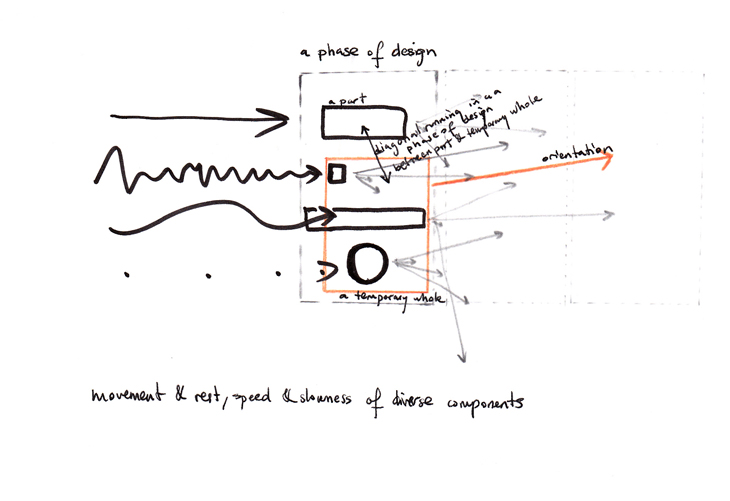 a phase of design
a part
diagonal running in a
phase of design
between part & temporary whole
orientation
a temporary whole
movement & rest, speed & slowness of diverse components